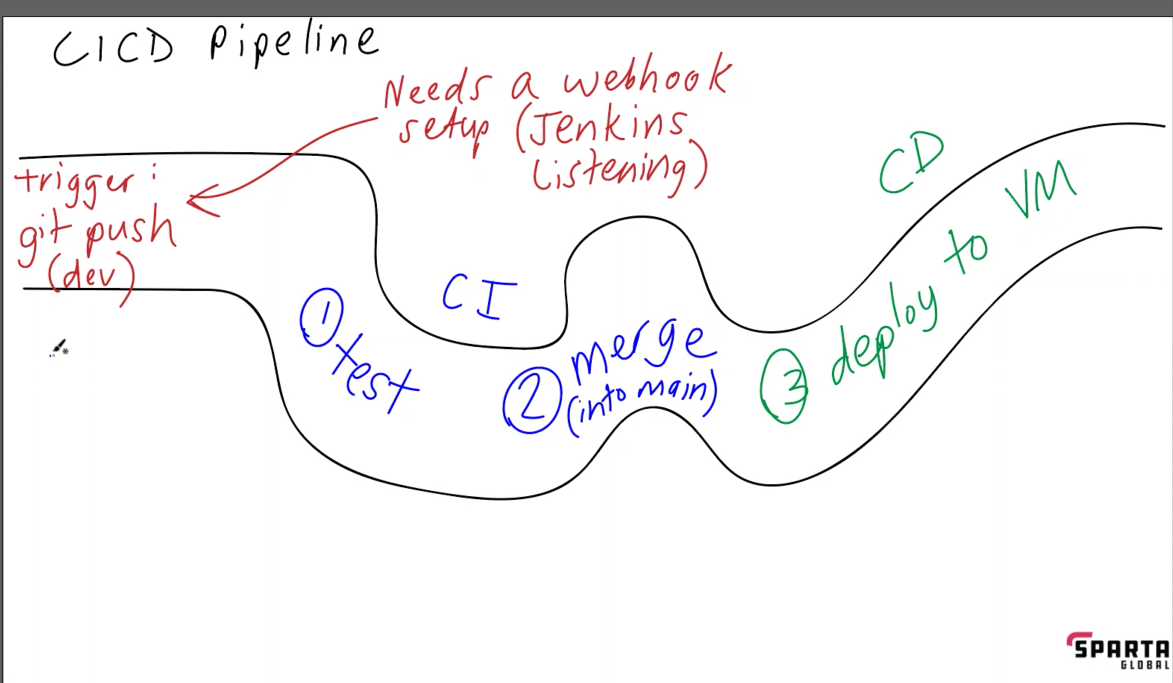 CICD Pipeline
Needs a webhook
setup (Jenkins
Listening)
trigger:
git push
(dev)
CI
1 test
2 merge
(into main)
CD
3 deploy to VM
SPARTA
GLOBAL